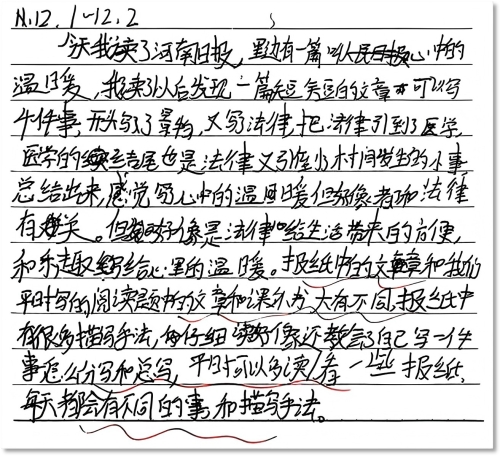 11.12.1—12.2
今天我读了河南日报,里边有一篇以人民日报心中的
温暖,我读了以后发现一篇短短的文章才可以写
件事,开头写了景物,又写法律,把法律引到了医学,
医学的结尾也是法律又引出小村间发生的小事,
总结出来,感觉写心中的温暖但好像都和法律
有关。但好像是法律给生活带来的方便,
和乐趣写给心里的温暖。报纸中的文章和我们
平时写的阅读题中的文章和课外书,大有不同,报纸中
有很多描写手法,每仔细读好像还教会了自己写一件
事怎么分写和总写,平时可以多读/看一些报纸,
每天都会有不同的事和描写手法。